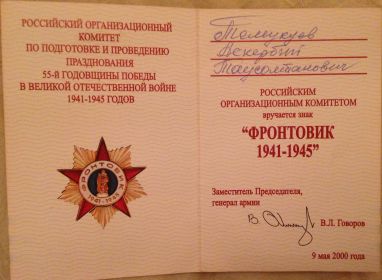 РОССИЙСКИЙ ОРГАНИЗАЦИОННЫЙ
КОМИТЕТ
ПО ПОДГОТОВКЕ И ПРОВЕДЕНИЮ
ПРАЗДНОВАНИЯ
55-й ГОДОВЩИНЫ ПОБЕДЫ
В ВЕЛИКОЙ ОТЕЧЕСТВЕННОЙ ВОЙНЕ
1941-1945 ГОДОВ
ФРОНТОВИК
1941-1945
РОССИЙСКИМ
ОРГАНИЗАЦИОННЫМ КОМИТЕТОМ
вручается знак
“ФРОНТОВИК
1941-1945”
Заместитель Председателя,
генерал армии
В.Л. Говоров
9 мая 2000 года